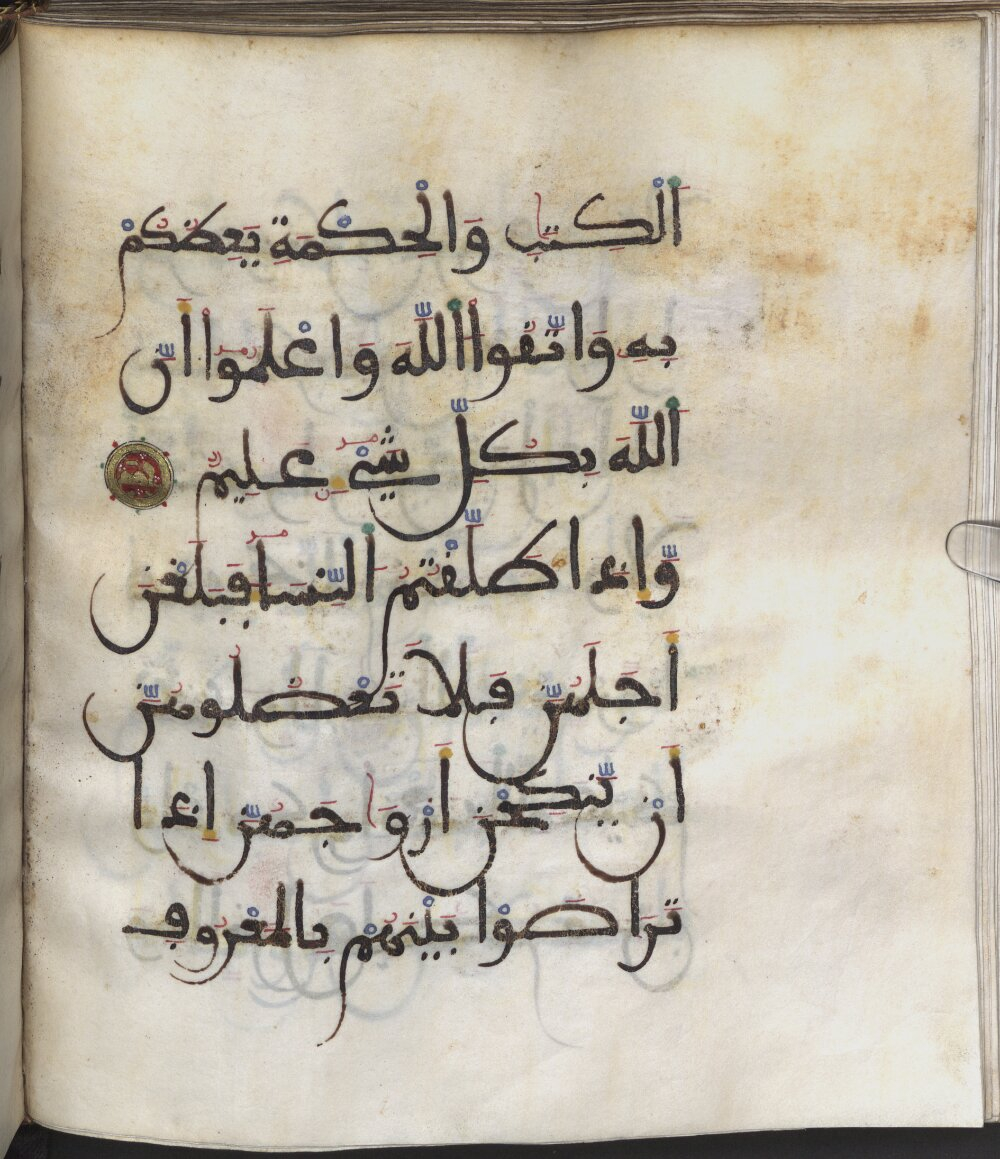 اَ۬لْكِتَٰبِ وَالْحِكْمَةِ يَعِظُكُم
بِهِۦ وَاتَّقُواْ اُ۬للَّهَ وَاعْلَمُوٓاْ أَنَّ
اَ۬للَّهَ بِكُلِّ شَےْءٍ عَلِيمٞ
وَّإِذَا طَلَّقْتُمُ اُ۬لنِّسَآءَ فَبَلَغْنَ
أَجَلَهُنَّ فَلَا تَعْضُلُوهُنَّ
أَنْ يَّنكِحْنَ أَزْوَٰجَهُنَّ إِذَا
تَرَٰضَوْاْ بَيْنَهُم بِالْمَعْرُوفِ